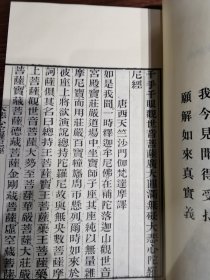 我今見聞得受持
願解如來真實義
千手千眼觀世音菩薩大圓滿無礙大悲心陀羅
尼經
唐西天竺沙門伽梵達摩譯
如是我聞一時釋迦牟尼佛在補陀落迦山觀世音
宮殿寶莊嚴道場中坐寶師子座其座純以無量雜
摩尼寶而用莊嚴百寶幢旛周匝懸列爾時如來於
彼座上將欲演說總持陀羅尼故與無央數菩薩摩
訶薩俱其名曰總持王菩薩寶王菩薩藥王菩薩藥
上菩薩觀世音菩薩大勢至菩薩華嚴菩薩大莊嚴
菩薩寶藏菩薩德藏菩薩金剛藏菩薩虛空藏菩薩